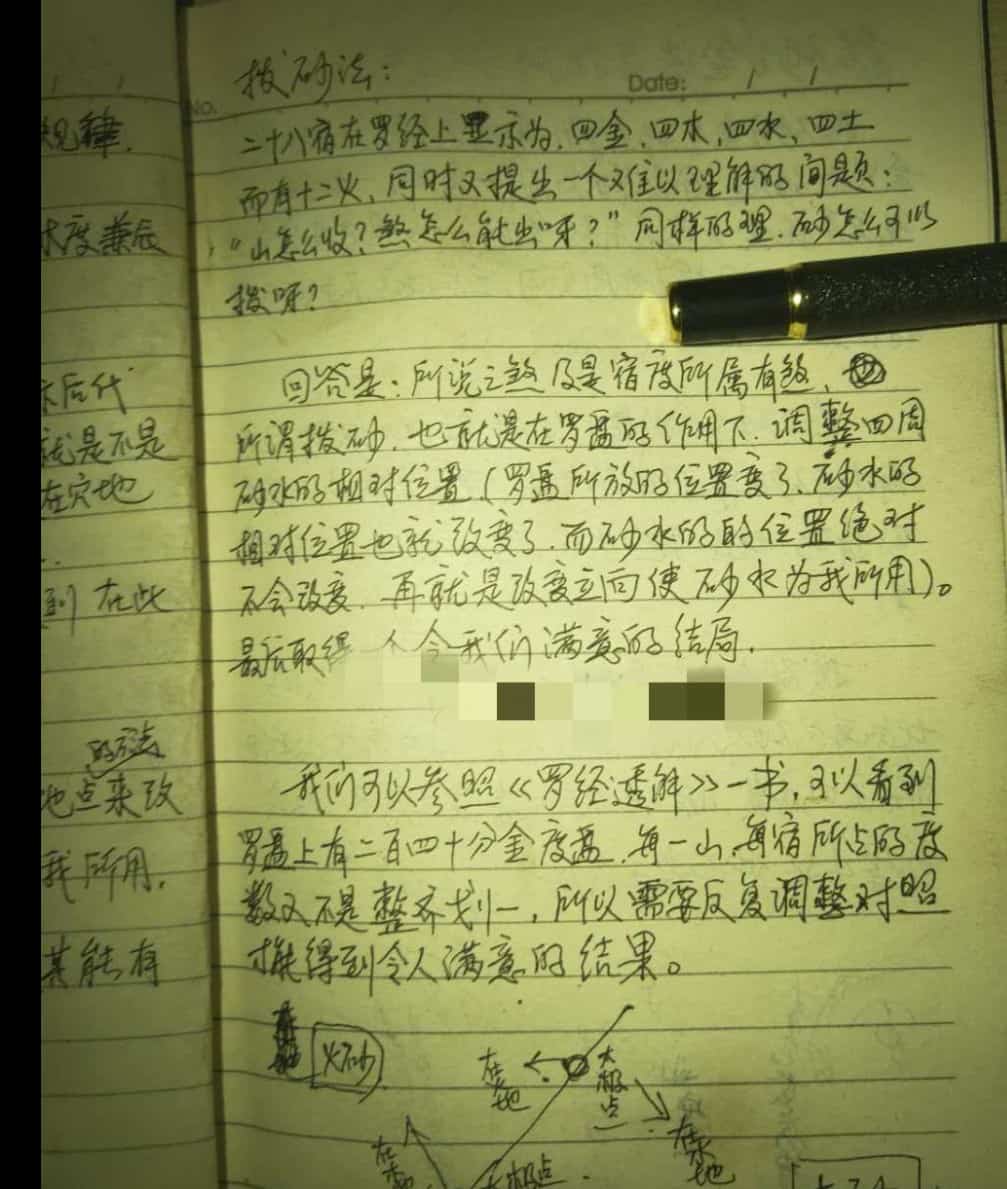 规律.
木度兼辰
后代
就是不是
在穴地
到 在此
的方法
地点来改
我所用.
某能有
No.
Date: / /
拨砂法:
二十八宿在罗经上显示为.四金.四木,四水、四土
而有十二火,同时又提出一个难以理解的问题:
"山怎么收?煞怎么能出呀?"同样的理.砂怎么可以
拨呀?
回答是:所说之煞乃是宿度所属有煞、
所谓拨砂.也就是在罗盘的作用下.调整四周
砂水的相对位置(罗盘所放的位置变了、砂水的
相对位置也就改变了.而砂水的的位置绝对
不会改变.再就是改变立向使砂水为我所用)。
最后取得一个令我们满意的结局.
我们可以参照《罗经透解》一书,可以看到
罗盘上有二百四十分金度盘.每一山、每宿所占的度
数又不是整齐划一,所以需要反复调整对照
才能得到令人满意的结果。
火砂
在火地
太极点
在木地
在水地
太极点